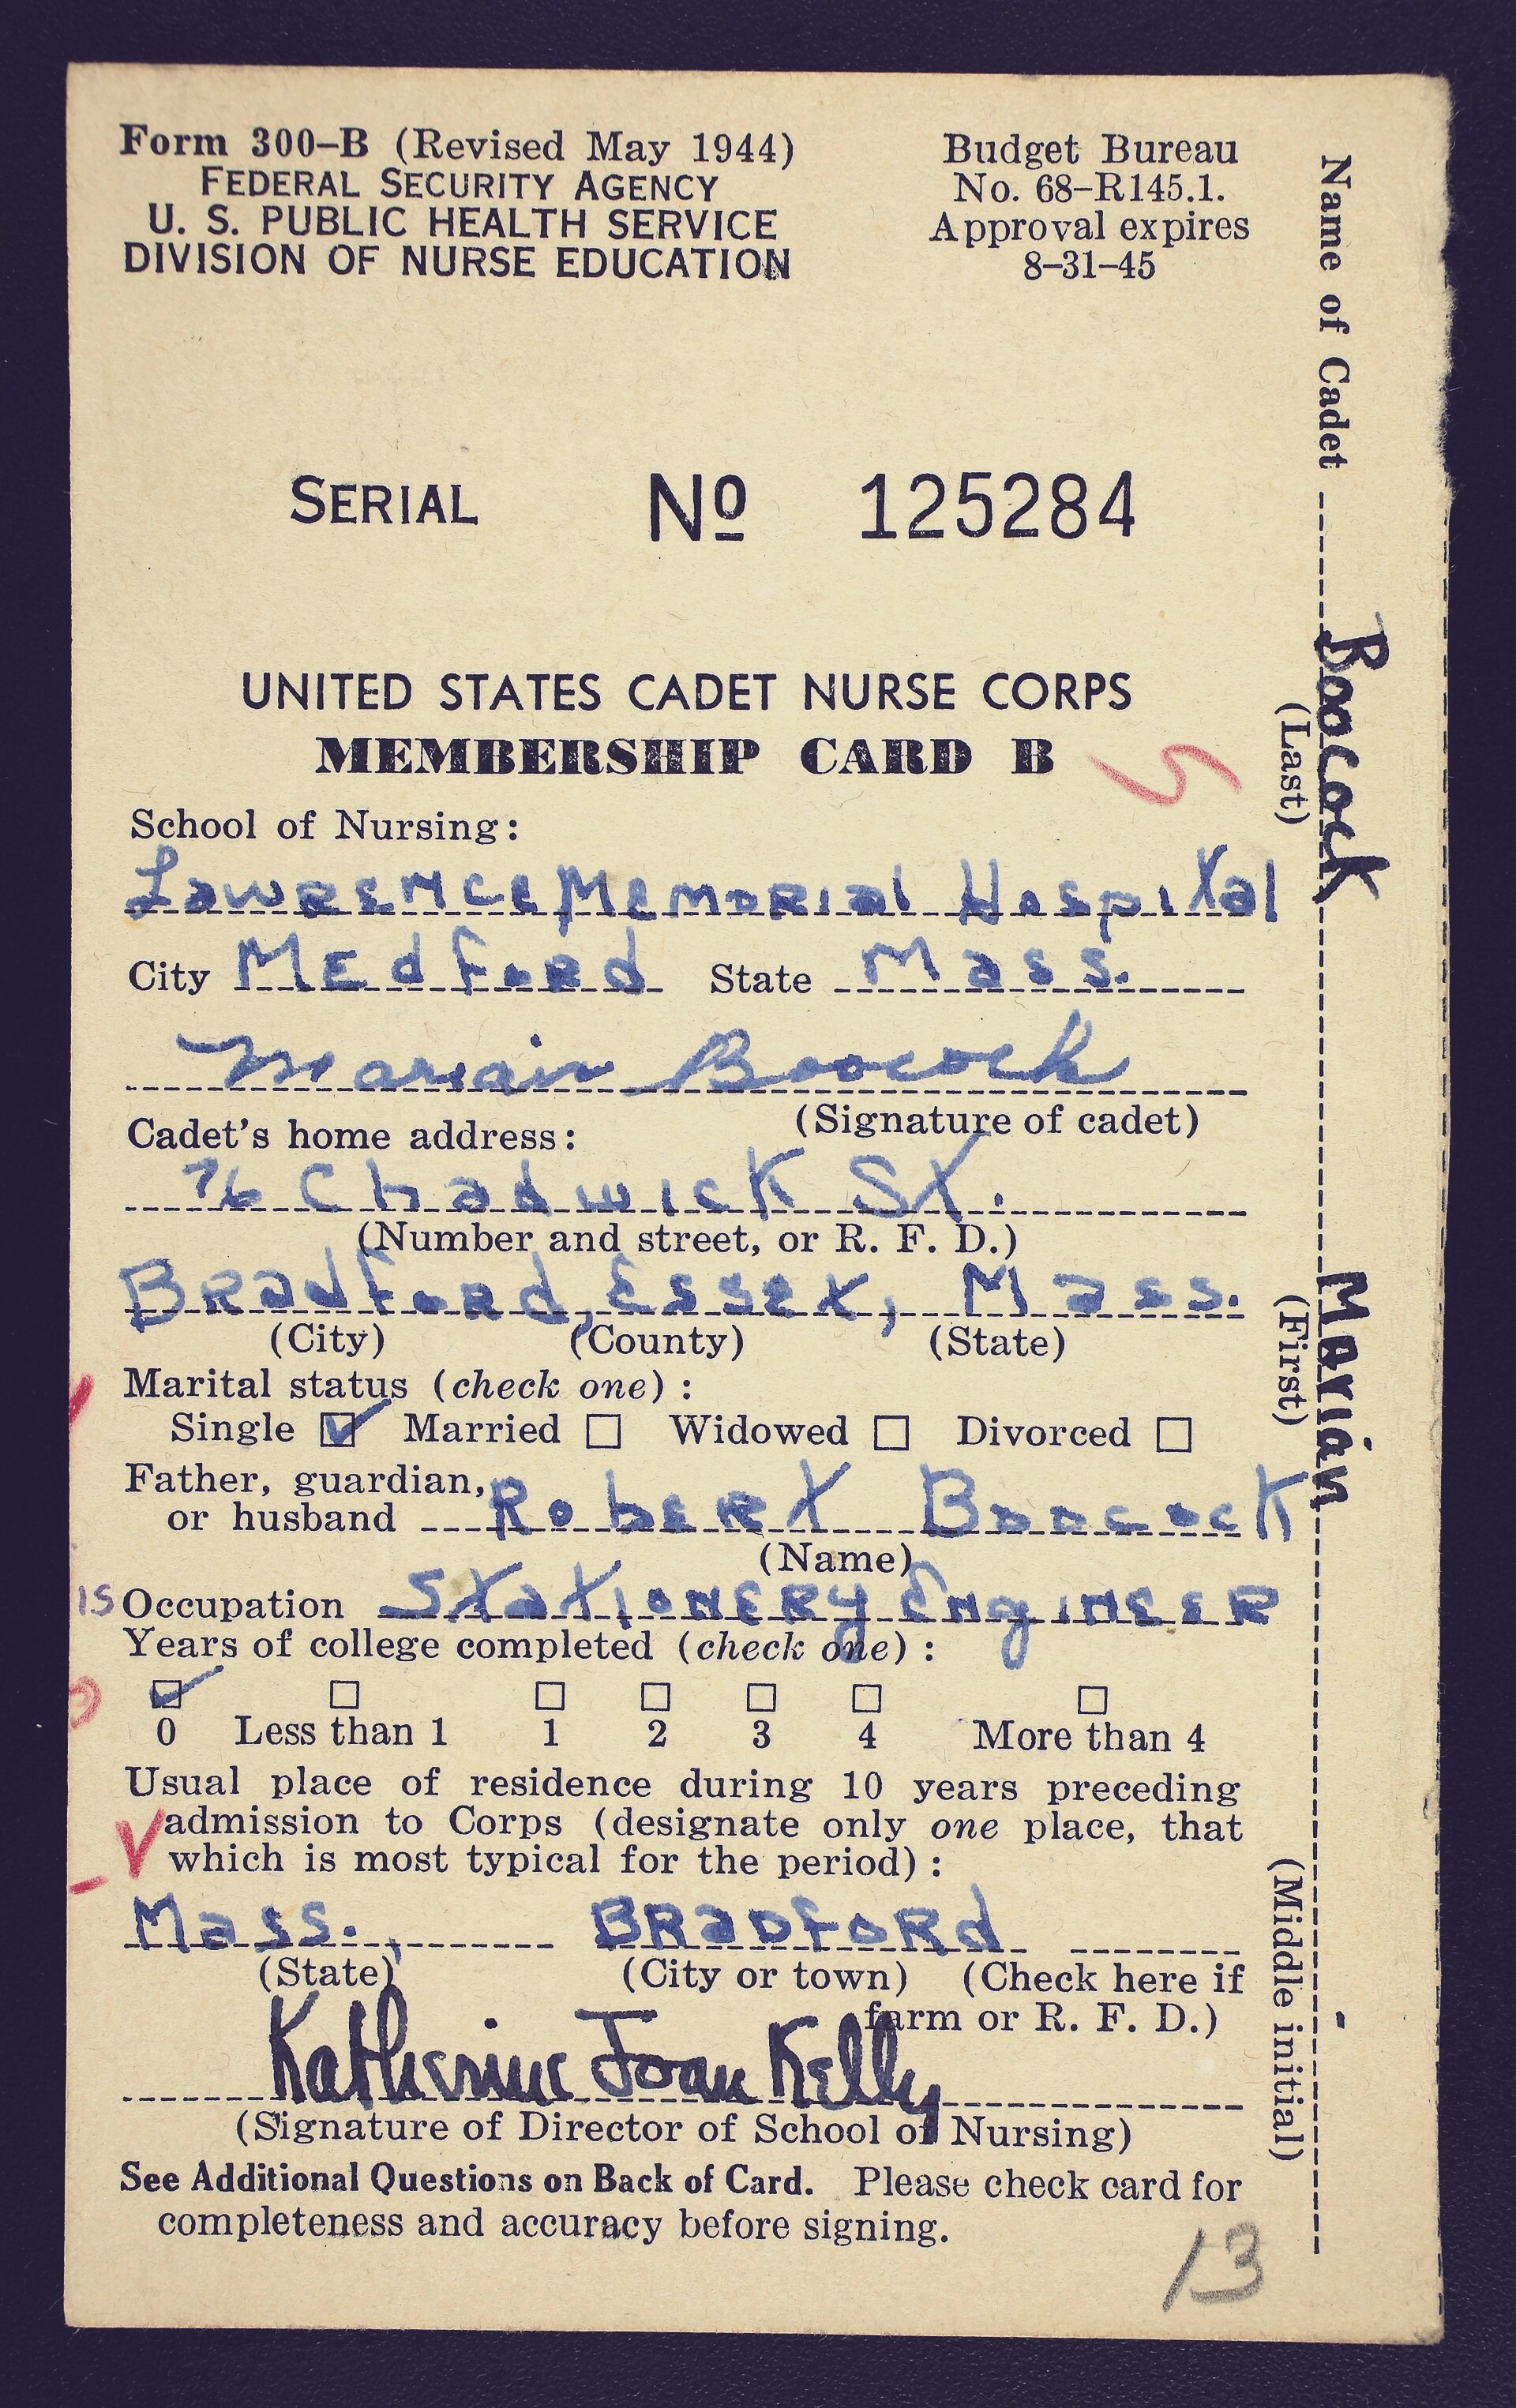 Form 300–B (Revised May 1944)
FEDERAL SECURITY AGENCY
U. S. PUBLIC HEALTH SERVICE
DIVISION OF NURSE EDUCATION
Budget Bureau
No. 68–R145.1.
Approval expires
8–31–45
SERIAL No 125284
UNITED STATES CADET NURSE CORPS
MEMBERSHIP CARD B
School of Nursing:
Lawrence Memorial Hospital
City Medford State Mass.
Marian Boocock
(Signature of cadet)
Cadet's home address:
76 Chadwick St.
(Number and street, or R. F. D.)
Bradford, Essex, Mass.
(City) (County) (State)
Marital status (check one) :
Single ☑ Married ☐ Widowed ☐ Divorced ☐
Father, guardian,
or husband Robert Boocock
(Name)
15 Occupation Stationery Engineer
Years of college completed (check one) :
☑ ☐ ☐ ☐ ☐ ☐ ☐
0 Less than 1 1 2 3 4 More than 4
Usual place of residence during 10 years preceding
admission to Corps (designate only one place, that
which is most typical for the period) :
Mass., Bradford
(State) (City or town) (Check here if
farm or R. F. D.)
Katherine Joan Kelly
(Signature of Director of School of Nursing)
See Additional Questions on Back of Card. Please check card for
completeness and accuracy before signing.
13
Name of Cadet Boocock Marian -
(Last) (First) (Middle initial)